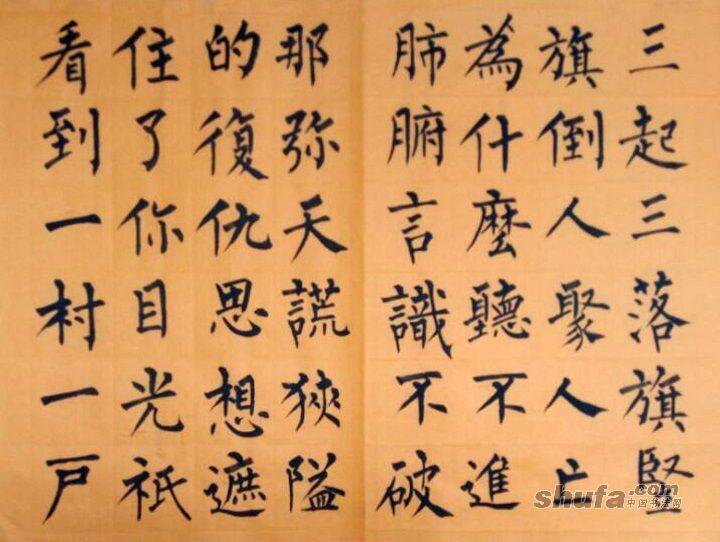 三起三落旗竪
旗倒人聚人亡
為什麼聽不進
肺腑言識不破
那弥天謊狹隘
的復仇思想遮
住了你目光祇
看到一村一戸
shufa.com
中国书法网